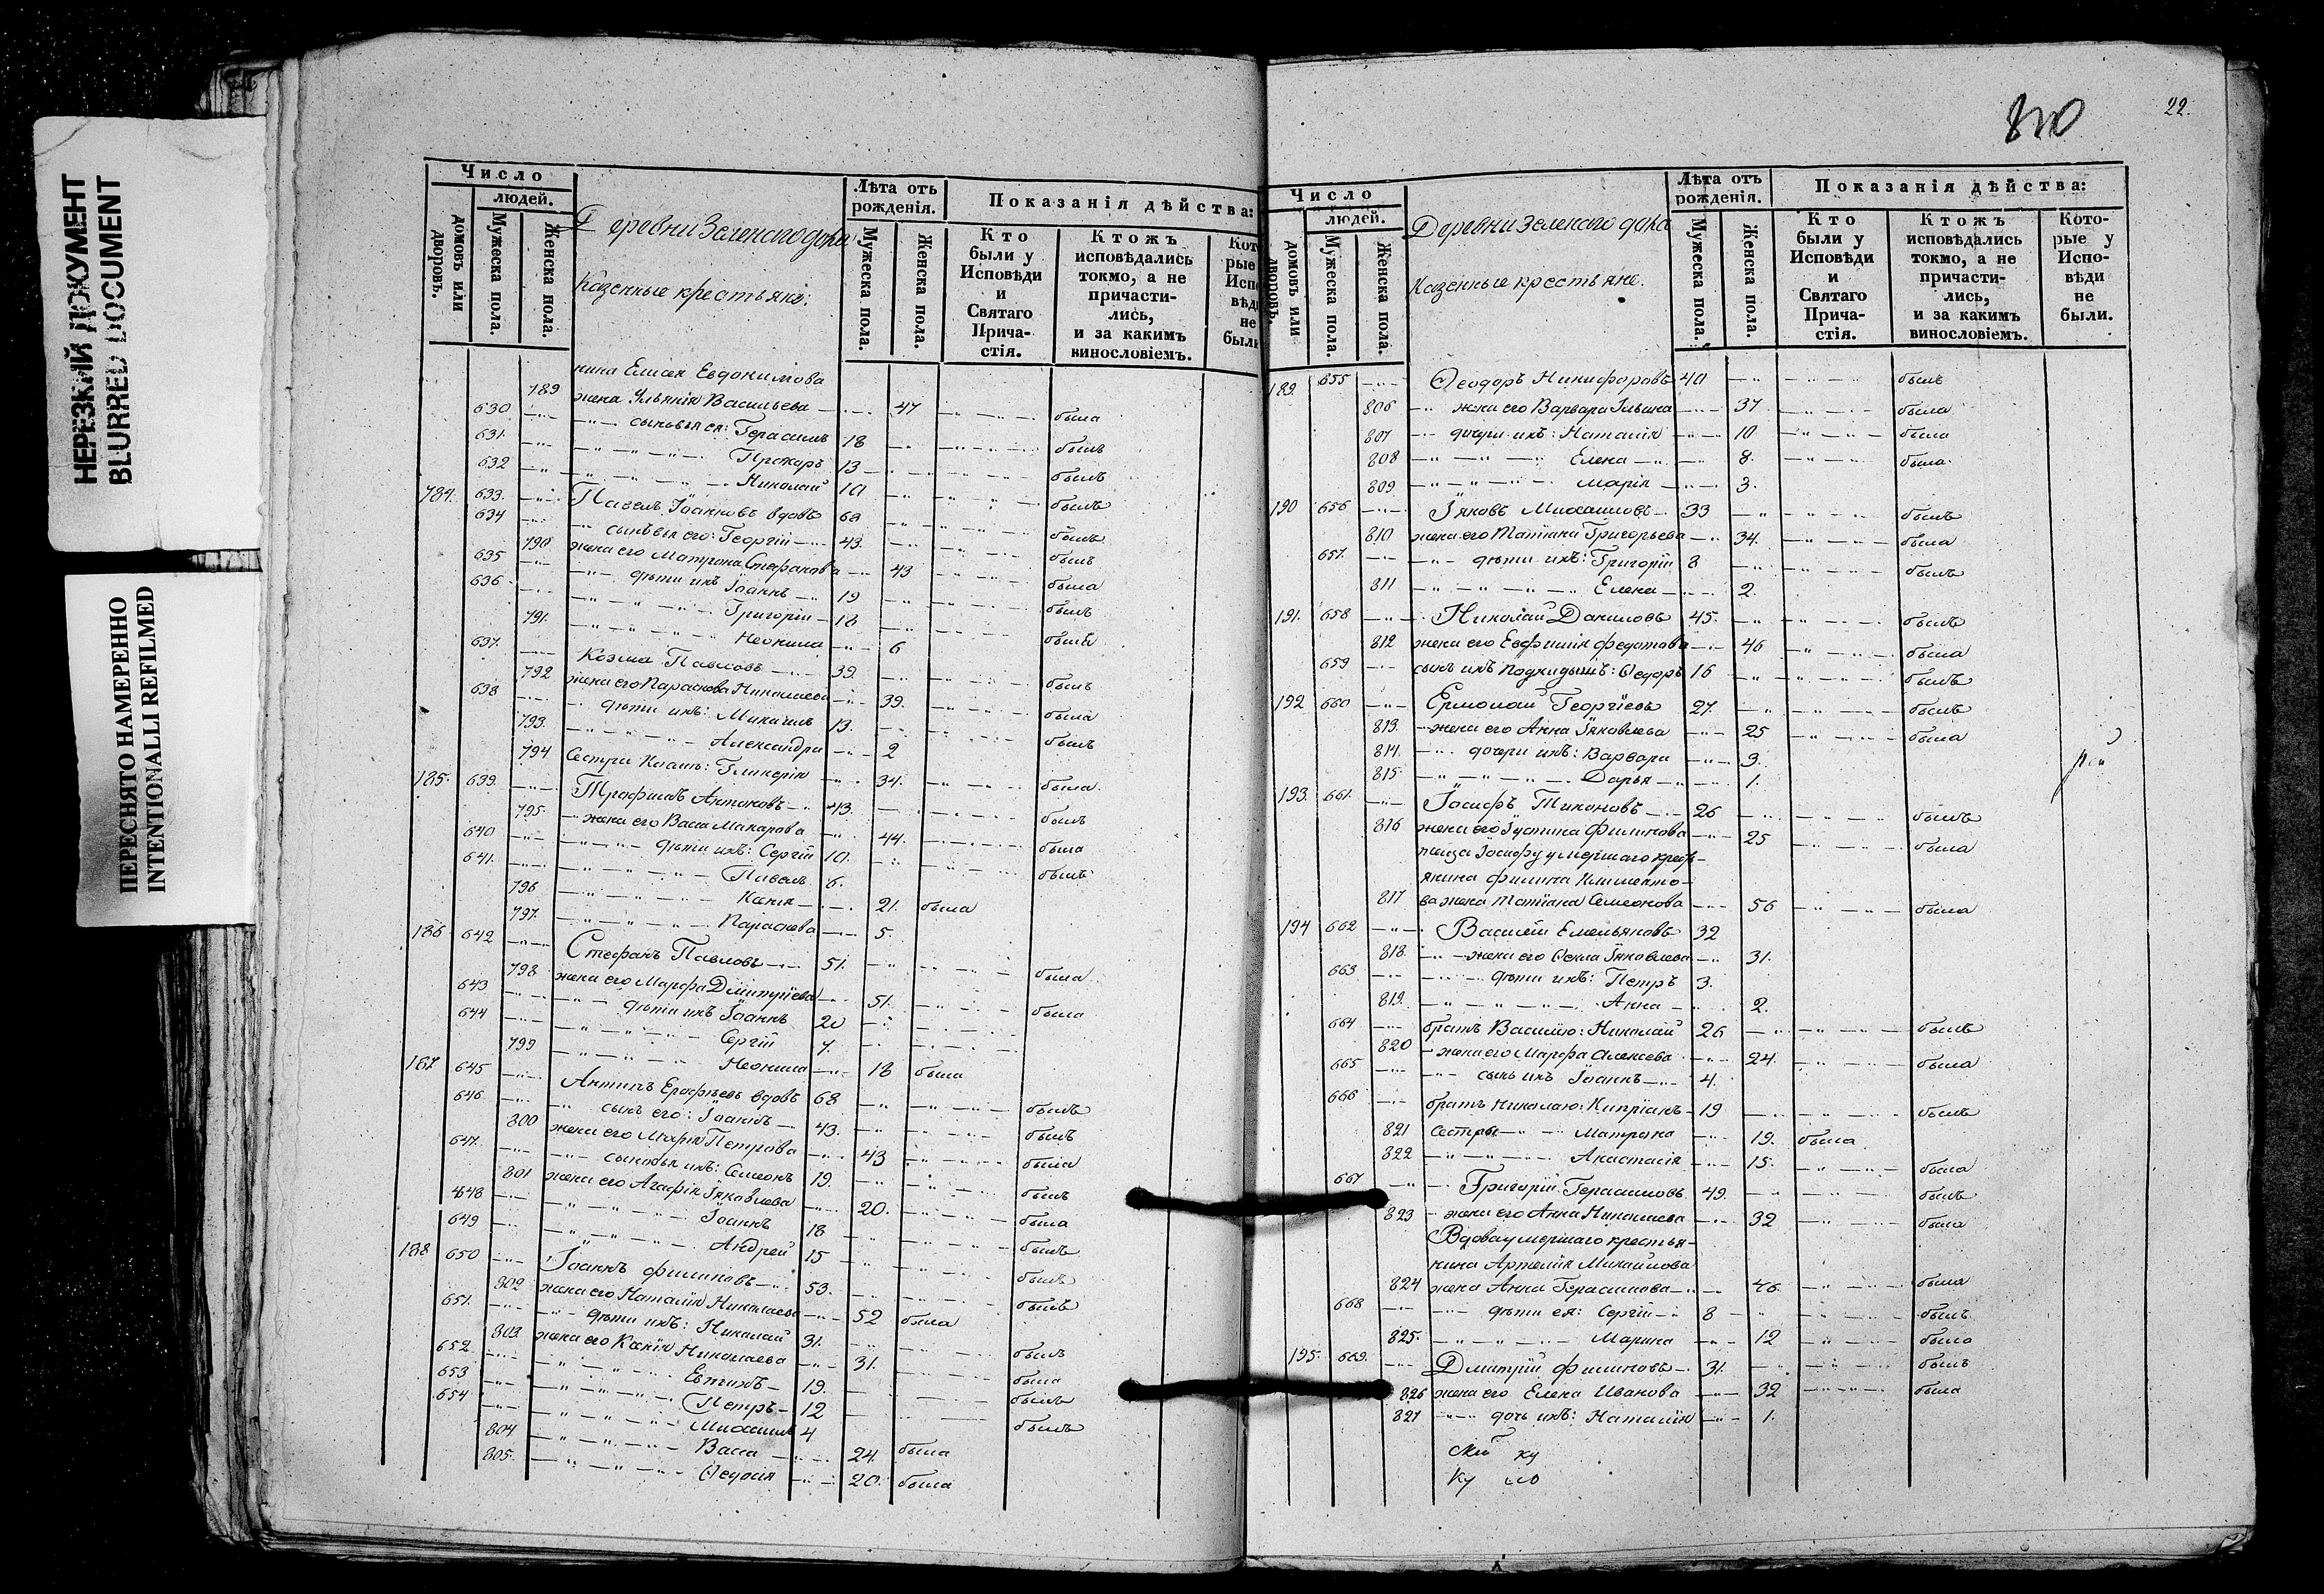 НЕРЕЗКИЙ ДОКУМЕНТ
BLURRED DOCUMENT
ПЕРЕСНЯТО НАМЕРЕННО
INTENTIONALLI REFILMED
Число
людей.
домовъ или дворовъ.
Мужеска пола.
Женска пола.
Деревни Зеленаго
Казенные крестьяне:
Лѣта отъ рожденія.
Мужеска пола.
Женска пола.
Показанія дѣйства:
Кто были у Исповѣди и Святаго Прича-стія.
Ктожъ исповѣдались токмо, а не причасти-лись, и за какимъ винословіемъ.
нина Елисея Евдокимова
789 жена Ульянія Васильева 47 была
630 сыновья ея: Герасимъ 18 былъ
631. Прохоръ 13 былъ
632 Николай 10 былъ
184. 633. Павелъ Іоанновъ вдовъ 60 былъ
634 сыновья его: Георгій 43. былъ
790 жена его Матрона Стефанова 43 была
635 дѣти ихъ Іоаннъ 19 былъ
636 Григорій 18
791. Неонила 6
637. Козма Павловъ 39. былъ
792 жена его Параскева Николаева 39. была
638 дѣти ихъ: Михаилъ 13. былъ
793. Александра 2
794 Сестра Козмы: Гликерія 34. была.
185. 639. Трофимъ Антоновъ 43. былъ
795. жена его Васса Макарова 44. была
640 дѣти ихъ: Сергій 10. былъ
641. Павелъ 6.
796 Ксенія 21. была
797. Параскева 5.
186 642 Стефанъ Павловъ 51. была
798 жена его Марфа Димитріева 51. была
643 дѣти ихъ Іоаннъ 20
644 Сергій 7.
799 Неонила 18 была
187 645 Антипъ Ерофѣевъ вдовъ 68 былъ
646 сынъ его: Іоаннъ 43. былъ
800 жена его Марія Петрова 43 была
647. сыновья ихъ: Симеонъ 19. былъ
801 жена его Агафія Іяковлева 20. была
648 Іоаннъ 18 былъ
649 Андрей 15 былъ
188 650 Іоаннъ Филиповъ 53. былъ
802 жена его Наталія Николаева 52 была
651. дѣти ихъ: Николай 31. былъ
803 жена его Ксенія Николаева 31. была
652. Евтихъ 19. былъ
653 Петръ 12 былъ
654 Михаилъ 4
804 Васса 24. была
805. Ѳедосія 20. была
22.
Число
людей.
домовъ или дворовъ.
Мужеска пола.
Женска пола.
Деревни Зеленаго
Казенные крестьяне.
Лѣта отъ рожденія.
Мужеска пола.
Женска пола.
Показанія дѣйства:
Кто были у Исповѣди и Святаго Прича-стія.
Ктожъ исповѣдались токмо, а не причасти-лись, и за какимъ винословіемъ.
Кото-рые у Испо-вѣди не были.
189. 655 Ѳеодоръ Никифоровъ 40 былъ
806 жена его Варвара Ильина 37 была
807 дочери ихъ: Наталія 10 была
808 Елена 8. была
809 Марія 3.
190 656 Іяковъ Михаиловъ 33 былъ
810 жена его Татіана Григорьева 34. была
657. дѣти ихъ: Григорій 8 былъ
811 Елена 2.
191. 658 Николай Даниловъ 45. былъ
812 жена его Евфимія Федотова 46 была
659 сынъ ихъ подкидышъ: Ѳедоръ 16 былъ
192 660 Ермолай Георгіевъ 27. былъ
813. жена его Анна Іяковлева 25 была
814. дочери ихъ: Варвара 3.
815. Дарья 1.
193. 661. Іосифъ Тихоновъ 26 былъ
816 жена его Іустина Филипова 25 была
теща Іосифу умершаго крест-
янина Филипа Климento-
817 ва жена Татіана Семеонова 56 была
194 662 Василій Емельяновъ 32
818. жена его Ѳекла Іяковлева 31.
663 дѣти ихъ: Петръ 3.
819. Анна 2.
664 братъ Василію: Николай 26 былъ
820 жена его Марфа Алексеева 24. была
665 сынъ ихъ Іоаннъ 4.
666 братъ Николаю: Кипріанъ 19 былъ
821 Сестры Матрона 19. была
822 Анастасія 15. была
667 Григорій Герасимовъ 49. былъ
823 жена его Анна Николаева 32 была
Вдова умершаго крестья-
нина Артемія Михайлова
824 жена Анна Герасимова 46. была
668 дѣти ея: Сергій 8 былъ
825. Марина 12 была
195. 669. Димитрій Филиповъ 31. былъ
826 жена его Елена Иванова 32 была
827 дочь ихъ: Наталія 1.